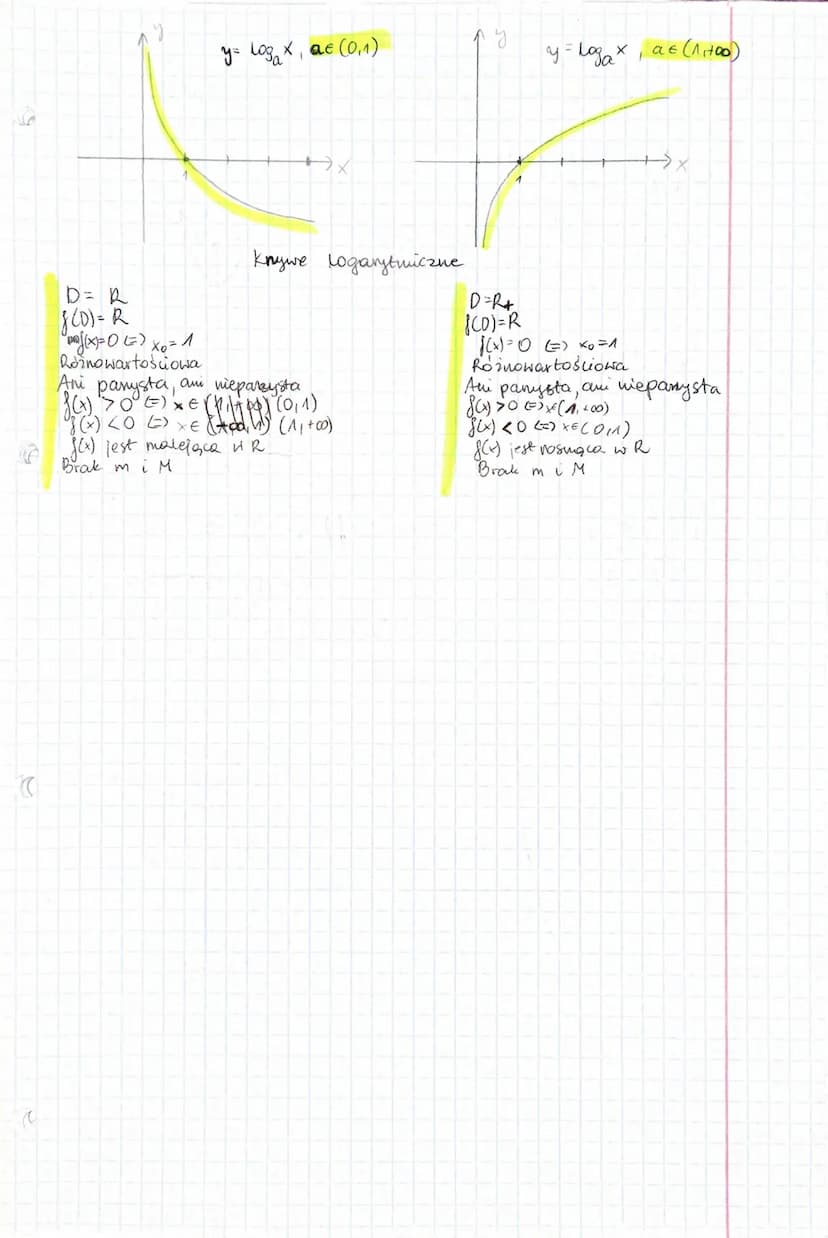 y
y = log_a x, a ∈ (0,1)
x
1
y
y = log_a x, a ∈ (1,+∞)
x
1
Krzywe logarytmiczne
D = R
f(D) = R
f(x)=0 (=) x₀ = 1
Różnowartościowa
Ani parzysta, ani nieparzysta
f(x) > 0 (=) x ∈ (0,1)
f(x) < 0 (=) x ∈ (1,+∞)
f(x) jest malejąca w R
Brak m i M
D=R₊
f(D)=R
f(x)=0 (=) x₀=1
Różnowartościowa
Ani parzysta, ani nieparzysta
f(x) >0 (=) x∈(1,+∞)
f(x) <0 (=) x∈(0,1)
f(x) jest rosnąca w R
Brak m i M